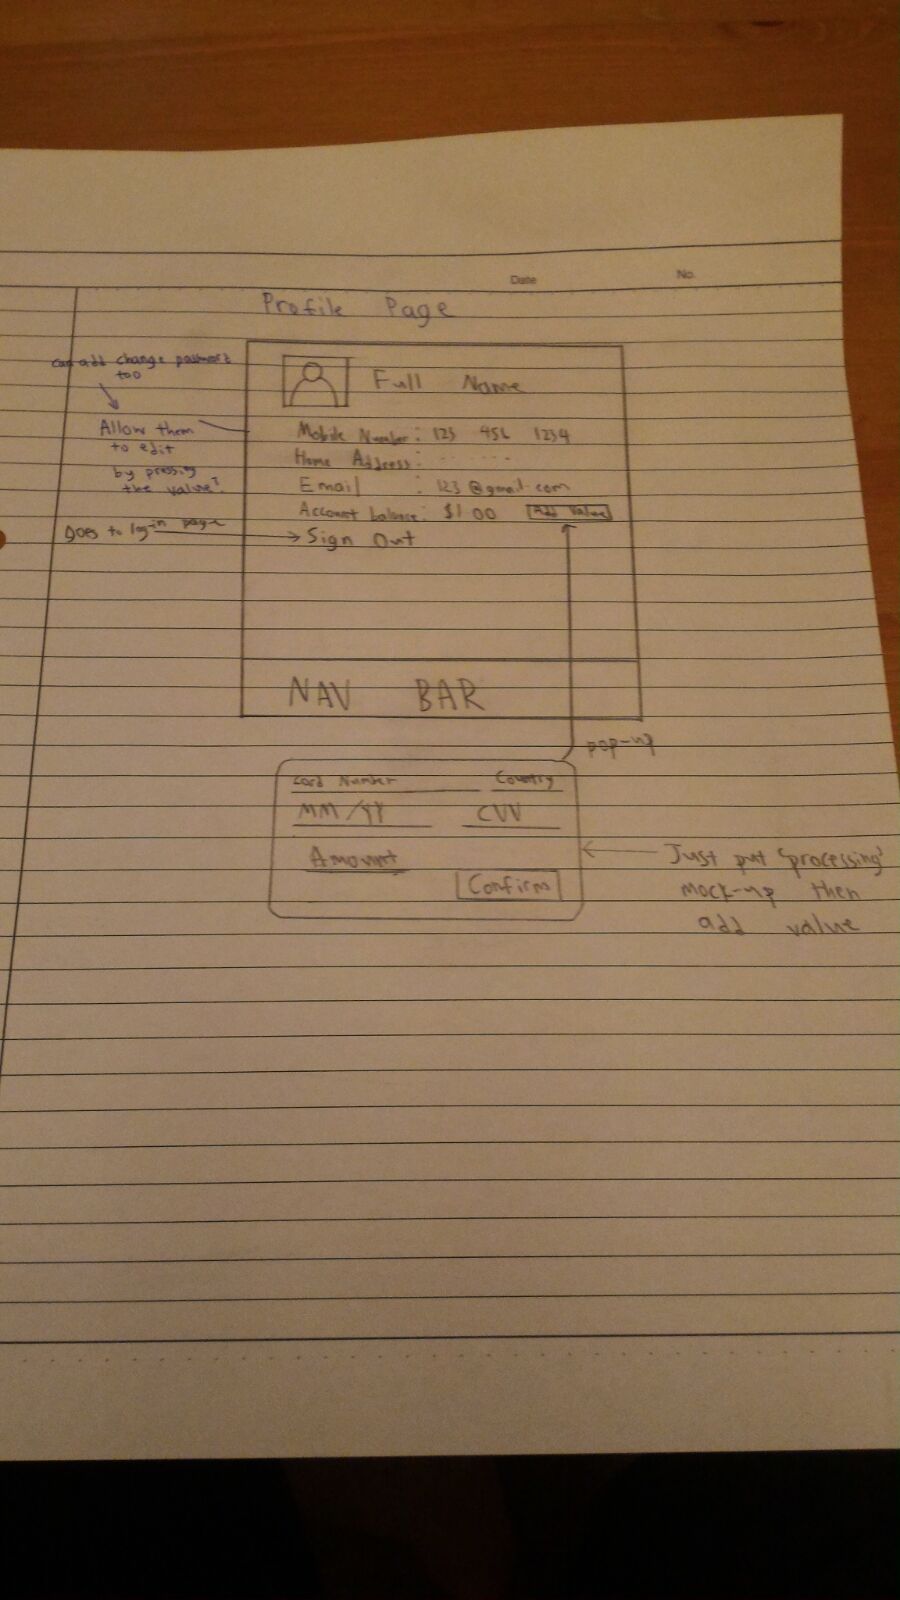 Date
No.
Profile Page
can add change password
too
Allow them
to edit
by pressing
the value?
Goes to log-in page
Full Name
Mobile Number: 123 456 1234
Home Address: . . . . . . . .
Email : 123@gmail.com
Account balance: $100 Add Value
Sign Out
NAV BAR
pop-up
Card Number Country
MM/YY CVV
Amount
Confirm
Just put 'processing'
mock-up then
add value